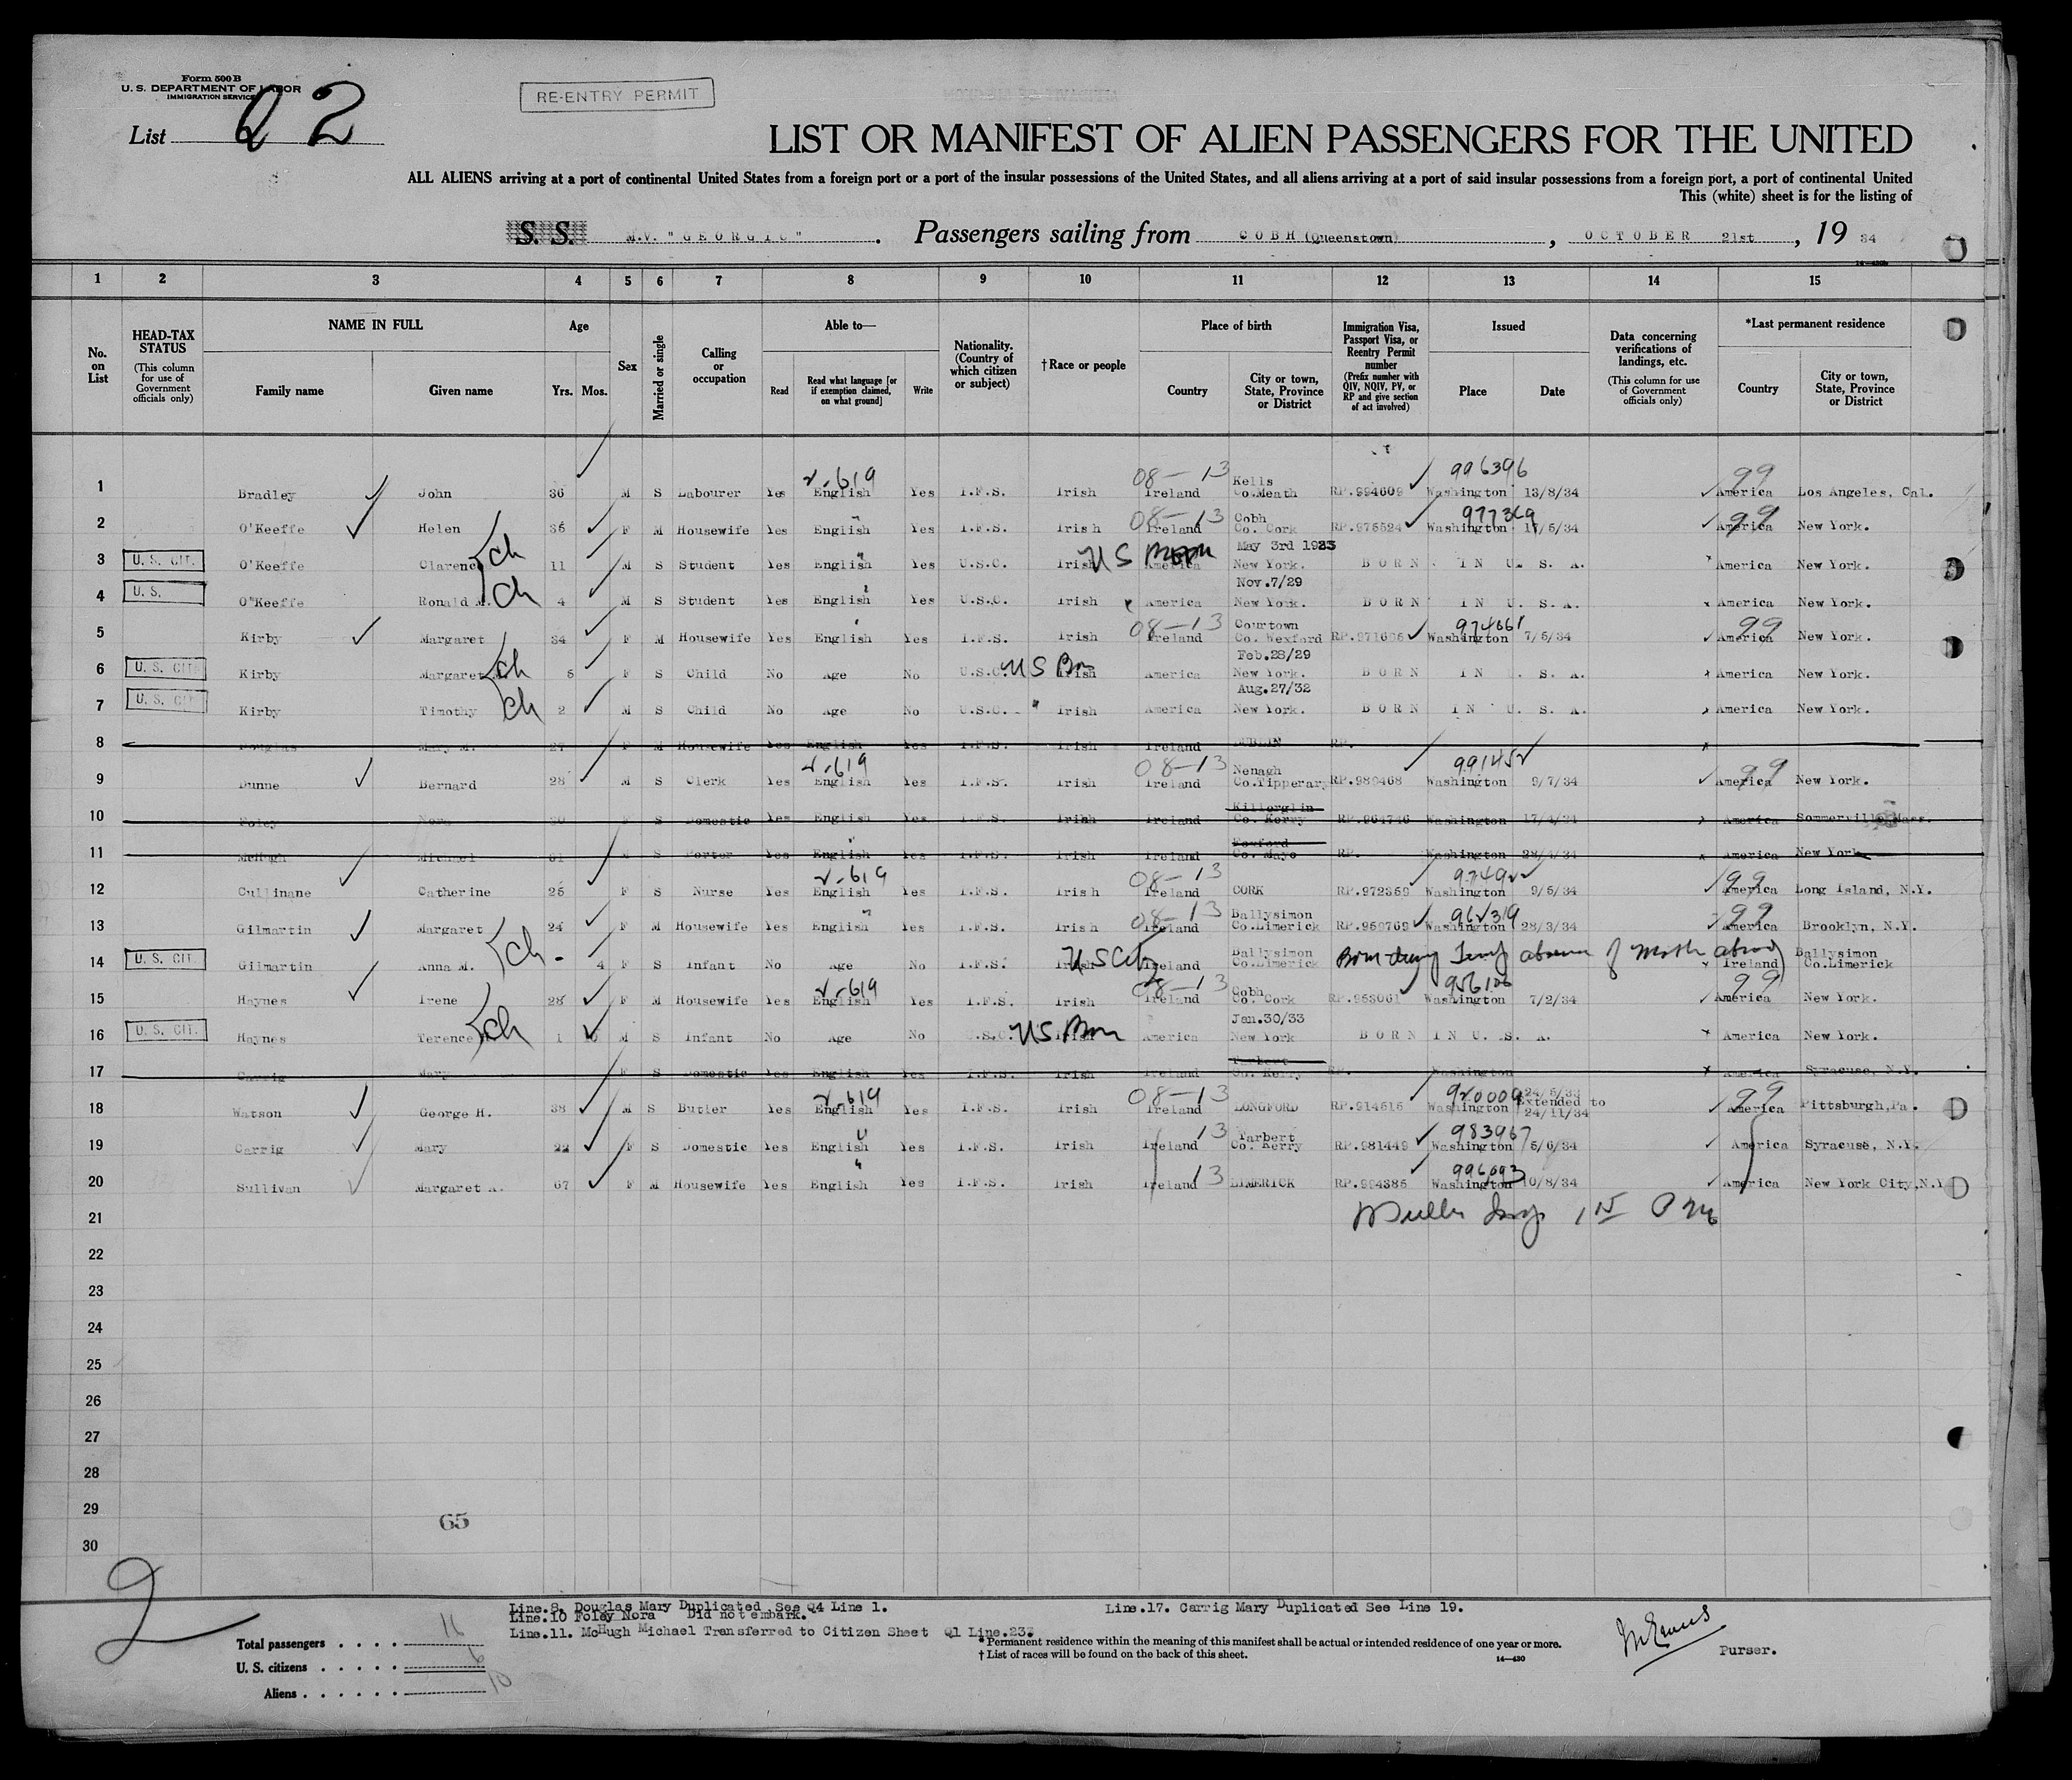 Form 500 B
U. S. DEPARTMENT OF LABOR
IMMIGRATION SERVICE
RE-ENTRY PERMIT
List Q 2
LIST OR MANIFEST OF ALIEN PASSENGERS FOR THE UNITED
ALL ALIENS arriving at a port of continental United States from a foreign port or a port of the insular possessions of the United States, and all aliens arriving at a port of said insular possessions from a foreign port, a port of continental United
This (white) sheet is for the listing of
S. S. M.V. "GEORGIC". Passengers sailing from COBH (Queenstown), OCTOBER 21st, 19 34
1 2 3 4 5 6 7 8 9 10 11 12 13 14 15
No. on List
HEAD-TAX STATUS
(This column for use of Government officials only)
NAME IN FULL
Family name Given name
Age
Yrs. Mos.
Sex
Married or single
Calling or occupation
Able to—
Read Read what language [or if exemption claimed, on what ground] Write
Nationality. (Country of which citizen or subject)
†Race or people
Place of birth
Country City or town, State, Province or District
Immigration Visa, Passport Visa, or Reentry Permit number
(Prefix number with QIV, NQIV, PV, or RP and give section of act involved)
Issued
Place Date
Data concerning verifications of landings, etc.
(This column for use of Government officials only)
*Last permanent residence
Country City or town, State, Province or District
08-13 Kells 996396 99
1 Bradley John 36 M S Labourer Yes English Yes I.F.S. Irish Ireland Co.Meath RP.994609 Washington 13/8/34 America Los Angeles, Cal.
08-13 Cobh 977349 99
2 O'Keeffe Helen 36 F M Housewife Yes English Yes I.F.S. Irish Ireland Co. Cork RP.975524 Washington 17/5/34 America New York.
ch US Born May 3rd 1923
3 U. S. CIT. O'Keeffe Clarence 11 M S Student Yes English Yes U.S.C. Irish America New York. BORN IN U. S. A. America New York.
ch Nov.7/29
4 U. S. O'Keeffe Ronald M. 4 M S Student Yes English Yes U.S.C. Irish America New York. BORN IN U. S. A. America New York.
08-13 Courtown 974661 99
5 Kirby Margaret 34 F M Housewife Yes English Yes I.F.S. Irish Ireland Co. Wexford Washington 7/5/34 America New York.
ch US Born Feb.28/29
6 U. S. CIT. Kirby Margaret 5 F S Child No Age No U.S.C. Irish America New York. BORN IN . S. A. America New York.
ch Aug.27/32
7 U. S. CIT Kirby Timothy 2 M S Child No Age No U.S.C. Irish America New York. BORN IN U. S. A. America New York.
8 Douglas Mary M. 27 F M Housewife Yes English Yes I.F.S. Irish Ireland DUBLIN RP.
08-13 Nenagh 99
9 Dunne Bernard 28 M S Clerk Yes English Yes I.F.S. Irish Ireland Co.Tipperary RP.989468 Washington 9/7/34 America New York.
Killorglin
10 Foley Nora F S Domestic Yes English Yes I.F.S. Irish Ireland Co. Kerry RP.964746 Washington 17/4/34 America Sommerville, Mass.
Foxford
11 McHugh Michael S Porter Yes English Yes I.F.S. Irish Ireland Co. Mayo RP. Washington 28/4/34 America New York
08-13 99
12 Cullinane Catherine 25 F S Nurse Yes English Yes I.F.S. Irish Ireland CORK RP.972359 Washington 9/5/34 America Long Island, N.Y.
08-13 Ballysimon 99
13 Gilmartin Margaret 24 F M Housewife Yes English Yes I.F.S. Irish Ireland Co.Limerick RP.959769 Washington 28/3/34 America Brooklyn, N.Y.
ch US City Ballysimon Born during Temp absence of Mother abroad Ballysimon
14 U. S. CIT. Gilmartin Anna M. - 4 F S Infant No Age No I.F.S. Irish Ireland Co.Limerick Ireland Co.Limerick
08-13 Cobh 956106 99
15 Haynes Irene 28 F M Housewife Yes English Yes I.F.S. Irish Ireland Co. Cork RP.953061 Washington 7/2/34 America New York.
ch US Born Jan.30/33
16 U. S. CIT. Haynes Terence 1 M S Infant No Age No U.S.C. Irish America New York BORN IN U. S. A. America New York.
Tarbert
17 Carrig Mary F S Domestic Yes English Yes I.F.S. Irish Ireland Co. Kerry RP. Washington America Syracuse, N.Y.
08-13 920009 24/5/33 99
18 Watson George H. 38 M S Butler Yes English Yes I.F.S. Irish Ireland LONGFORD RP.914515 Washington Extended to 24/11/34 America Pittsburgh,Pa.
13 Tarbert 983967
19 Carrig Mary 22 F S Domestic Yes English Yes I.F.S. Irish Ireland Co. Kerry RP.981449 Washington 5/6/34 America Syracuse, N.Y.
13 996093
20 Sullivan Margaret A. 67 F M Housewife Yes English Yes I.F.S. Irish Ireland LIMERICK RP.994385 Washington 10/8/34 America New York City,N.Y
21
22
23
24
25
26
27
28
29
30
65
2
Line.8. Douglas Mary Duplicated See Q4 Line 1.
Line.10 Foley Nora Did not embark.
Line.11. McHugh Michael Transferred to Citizen Sheet Q1 Line.23.
Line.17. Carrig Mary Duplicated See Line 19.
Total passengers 16
U. S. citizens 6
Aliens 10
* Permanent residence within the meaning of this manifest shall be actual or intended residence of one year or more.
† List of races will be found on the back of this sheet.
14—430
Purser.